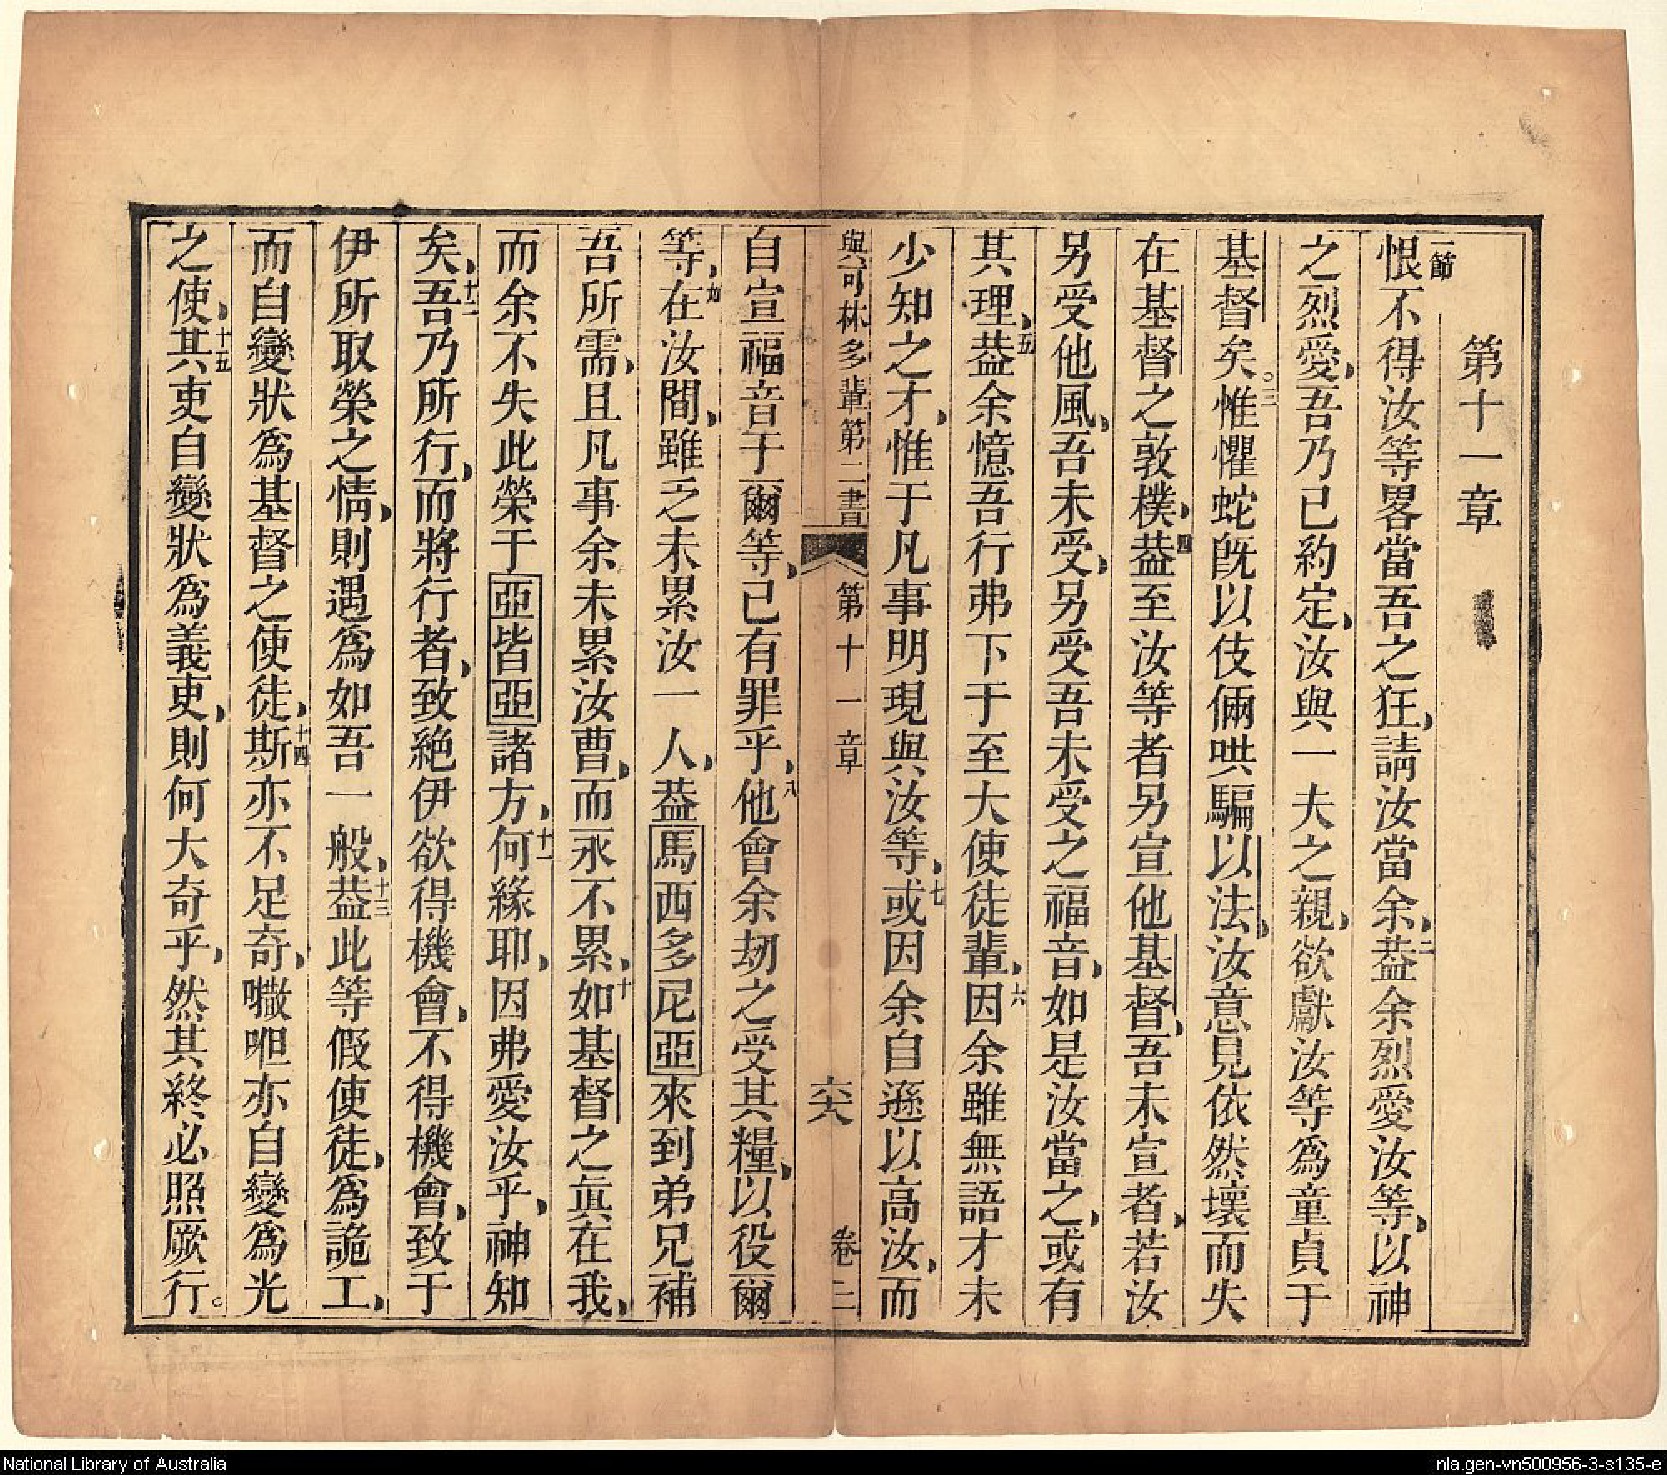 第十一章
一節
恨不得汝等畧當吾之狂、請汝當余、二葢余烈愛汝等、以神
之烈愛、吾乃已約定、汝與一夫之親、欲獻汝等為童貞于
基督矣。三惟懼蛇旣以伎倆哄騙以法、汝意見依然壞而失
在基督之敦樸、四葢至汝等者另宣他基督、吾未宣者、若汝
另受他風、吾未受、另受吾未受之福音、如是汝當之、或有
其理、五葢余憶吾行弗下于至大使徒輩、六因余雖無語才未
少知之才、惟于凡事明現與汝等、七或因余自遜以高汝、而
與可林多輩第二書 第十一章 六六 卷二
自宣福音于爾等、已有罪乎、八他會余刼之受其糧、以役爾
等、九在汝間、雖乏未累汝一人、葢馬西多尼亞來到弟兄補
吾所需、且凡事余未累汝曹、而永不累、十如基督之眞在我、
而余不失此榮于亞皆亞諸方、十一何緣耶、因弗愛汝乎、神知
矣、十二吾乃所行、而將行者、致絶伊欲得機會、不得機會、致于
伊所取榮之情、則遇為如吾一般、十三葢此等假使徒、為詭工、
而自變狀為基督之使徒、十四斯亦不足奇、㘔呾亦自變為光
之使、十五其吏自變狀為義吏、則何大奇乎、然其終必照厥行。
National Library of Australia
nla.gen-vn500956-3-s135-e